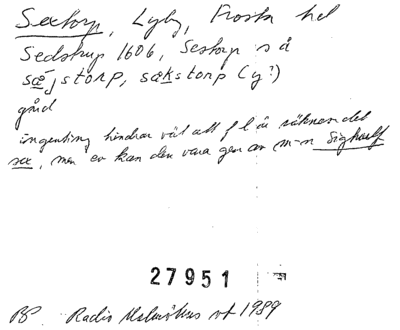 Sextorp, Lyby, Frosta hd
Sedstrup 1606, Sestorp s å
sæjstorp, sækstorp (y?)
gård
ingenting hindrar väl att f l är räknandet
sex, men ev kan den vara gen av m-n Sighwulf
27951
BP Radio Malmöhus vt 1989